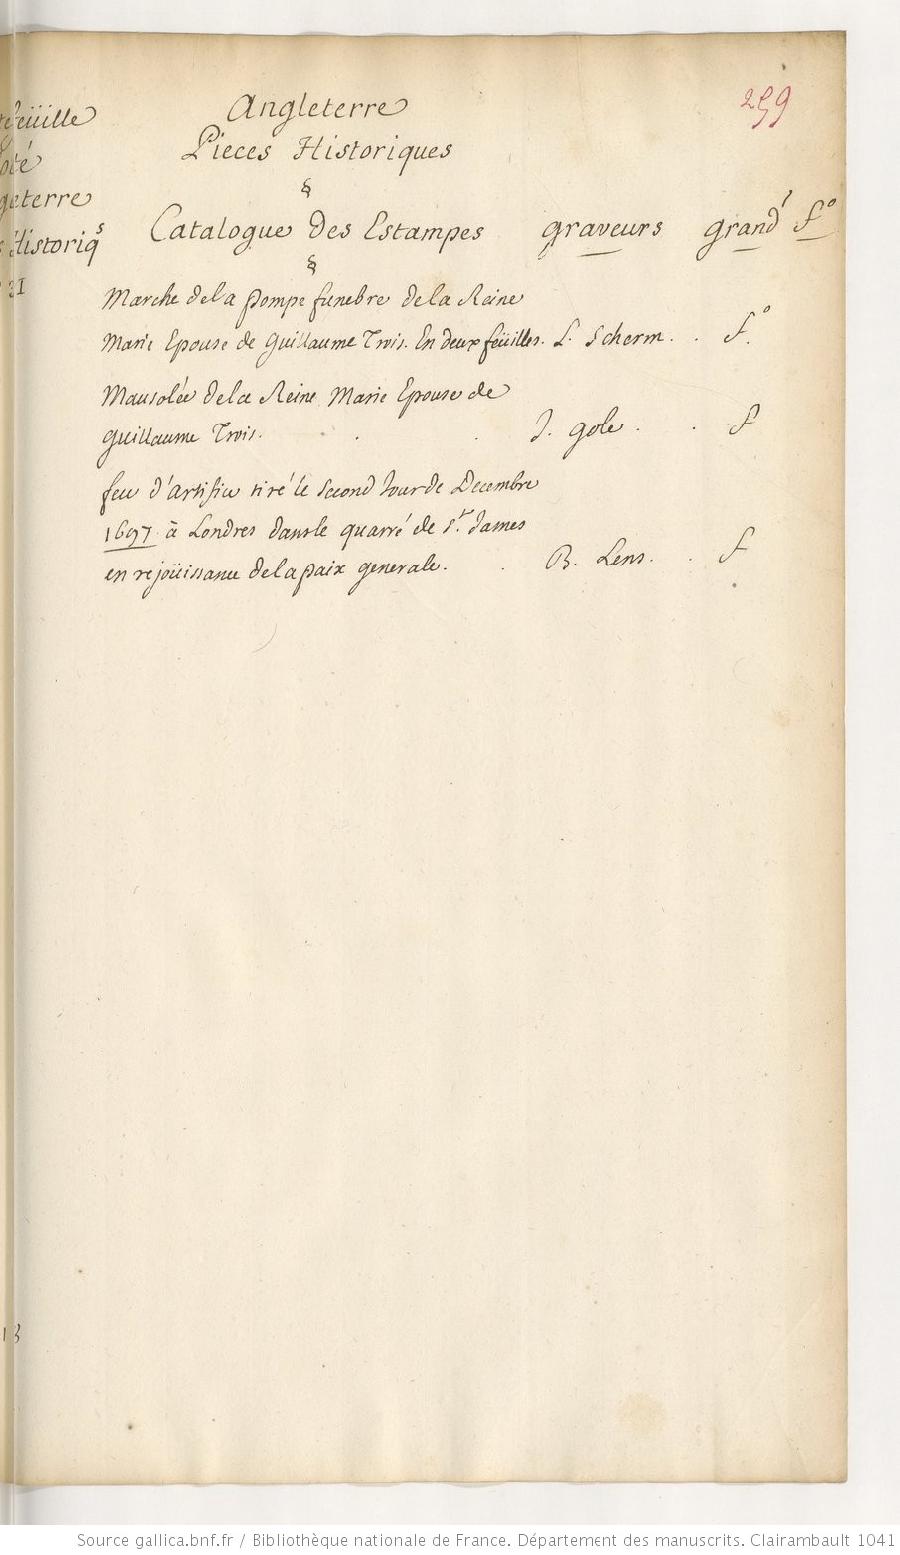 259
Angleterre
Pieces Historiques
§
Catalogue Des Estampes graveurs grandr fo
§
Marche de la pompe funebre de la Reine
Marie Epouse de Guillaume Trois. En deux feüilles. L. Scherm. . fo.
Mausolée de la Reine Marie Epouse de
guillaume Trois. . . J. gole . . f
feu d'artifice tiré le Second Jour de Decembre
1697 à Londres dans le quarré de St. James
en rejoüissance de la paix generale. . B. Lens. . f
feüille
geterre
Historiqs
31
13
Source gallica.bnf.fr / Bibliothèque nationale de France. Département des manuscrits. Clairambault 1041